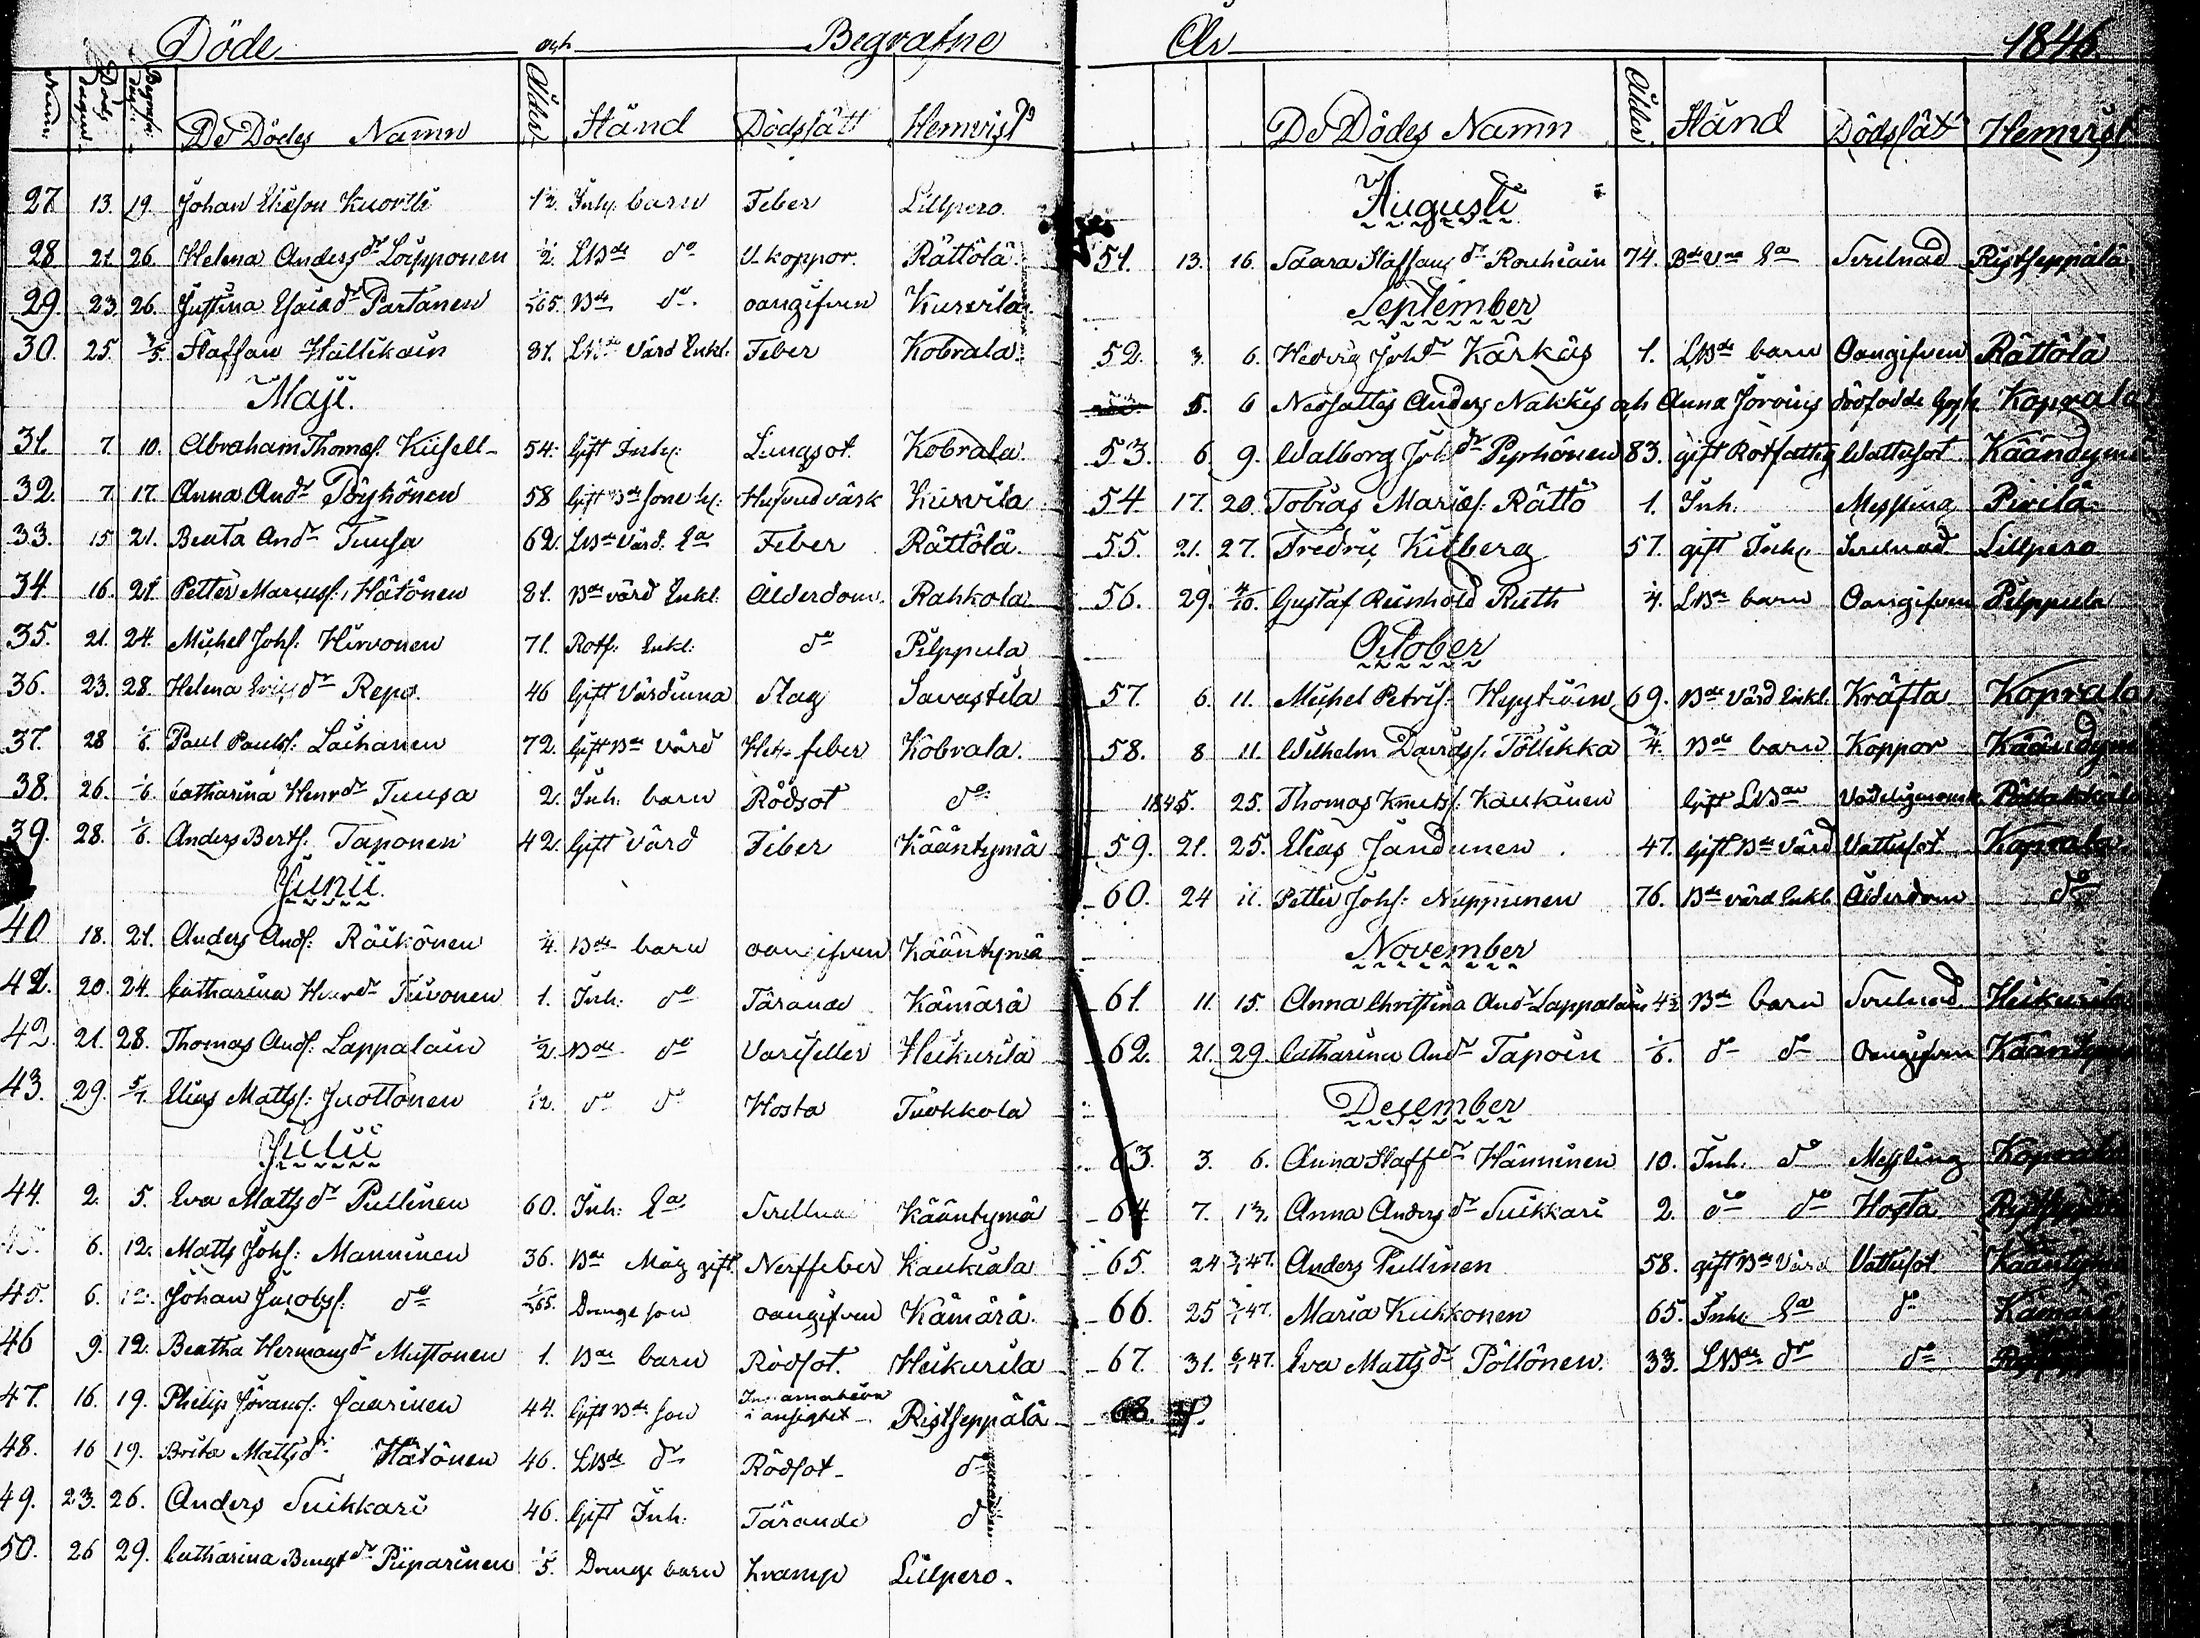 Döde och Begrafne
Num: Döds Dagen Begrafn: Dag: De Dödes Namn Ålder Stånd Dödssätt Hemvist
27. 13. 19. Johan Eliæson 12. Inh: barn Feber Lillpero.
28. 21. 26. Helena Anders dr Löipponen 1/2. LBde do V. koppor. Rättölä.
29. 23 26. Justina Esaiæ dr Partanen 1/365. Bde do. oangifven Kurvila.
30. 25. 3/5. Staffan Hällikäin 81. LBde Värd Enkl. Feber Kobrala.
Maji.
31. 7. 10. Abraham Thomæs: Kiisell 54. Gift Inh: Lungsot. Kobrala.
32. 7. 17. Anna And dr Pöyhönen 58 Gift Bde Hufvudvärk Kurvila
33. 15 21. Beata And dr Tuusa 62. LBde Värd. Ea Feber Rättölä.
34. 16. 21. Petter Marcuss: Hätönen 81. Bde värd Enkl: Ålderdom. Rahkola
35. 21. 24. Michel Johs: Hirvonen 71. Rotf: Enkl: do Pilppula
36. 23. 28. Helena Erics dr Repo. 46 Gift Värdinna Slag Savastila
37. 28 1/6. Paul Pauls: Laihanen 72. Gift Bde Värd Het-feber Kobrala.
38. 26. 1/6. Catharina Henr dr Tuusa 2. Inh: barn Rödsot do
39. 28. 1/6. Anders Berts: Taponen 42. Gift Värd Feber Kääntymä
Junii.
40 18. 21. Anders Ands: Räikönen 1/4. Bde barn oangifven Kääntymä
41. 20. 24. Catharina Henr dr Tiivonen 1. Inh: do Tärande Kämärä
42. 21. 28. Thomas Ands: Lappalain 1/2. Bde do Heikurila
43. 29. 5/7. Elias Matts: Juottonen 1/12. do do Hosta Tuokkola
Julii
44. 2. 5. Eva Matts dr Pullinen 60. Inh: Ea Kääntymä
6. 12. Matts Johs: Manninen 36. Bde Måg gift. Nerffeber Kaukiala
45. 6. 12. Johan Jacobs: do 1/365. Drenge son oangifven Kämärä.
46 9. 12. Beatha Hermans dr Mustonen 1. Bde barn Rödsot. Heikurila
47. 16. 19. Philip Görans: Jäärinen 44. Gift Bde son i ansigtet Ristseppälä
48. 16 19. Brita Matts dr Hätönen 46. LBde dr Rödsot do
49. 23. 26. Anders Suikkari 46. Gift Inh: Tärande do
50. 26 29. Catharina Bengt dr Piiparinen 1/5. Drenge barn Kramp Lillpero.
År 1846.
De Dödes Namn Ålder Stånd Dödssätt Hemvist
Augusti
51. 13. 16. Saara Staffans dr Rouhiain 74. Ristseppälä
September
52. 3. 6. Hedvig Joh dr Kärkäs 1. LBde barn Oangifven Rättölä
5. 6 Anders Nakkis och Anna dödfödde Koprala
53. 6 9. Walborg Joh dr Pyrhönen 83. gift Rotfattig Wattusot Kääntymä
54. 17. 20. Tobias Mariæs: Rättö 1. Inh. Messling Pirilä
55. 21. 27. Fredric Kilberg 57. gift Inh: Lillpero
56. 29. 4/10. Gustaf Reinhold Ruth 1/4. LBde barn Oangifven Pilppula
October
57. 6. 11. Michel Petris: 69. Bde Värd Enkl: Kräfta Koprala
58. 8 11. Wilhelm Davids: Töllikkä 3/4. Bde barn Koppor Kääntymä
1845. 25. Thomas Knuts: Kaukanen Gift LBde
59. 21. 25. Elias Jandunen. 47. Gift Bde Värd Vattusot Koprala
60. 24 11. Petter Johs: Nuppunen 76. Bde värd Enkl: Ålderdom do
November
61. 11. 15. Anna Christina And dr Lappalain Bde barn Heikurila
62. 21. 29. Catharina And dr Tapoin 1/6. do do Oangifven Kääntymä
December
63. 3. 6. Anna Staff dr Hänninen 10. Inh: do Messling Koprala
64 7. 13. Anna Anders dr Suikkari 2. do do Hosta
65. 24 47. Anders Pullinen 58. gift Bde Värd Vattusot Kääntymä
66. 25 47. Maria Kukkonen 65. Inh: Ea do Kämärä
67. 31. 47. Eva Matts dr Pöllönen. 33. LBde dr do
68.